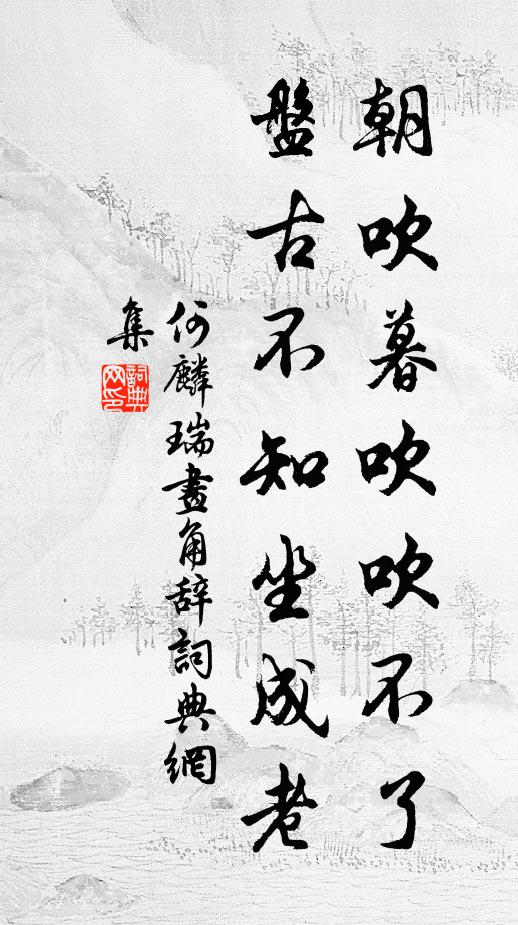 朝吹暮吹吹不了
盤古不知坐成老
何麟瑞畫角辞詞典網
集
詞典
网印